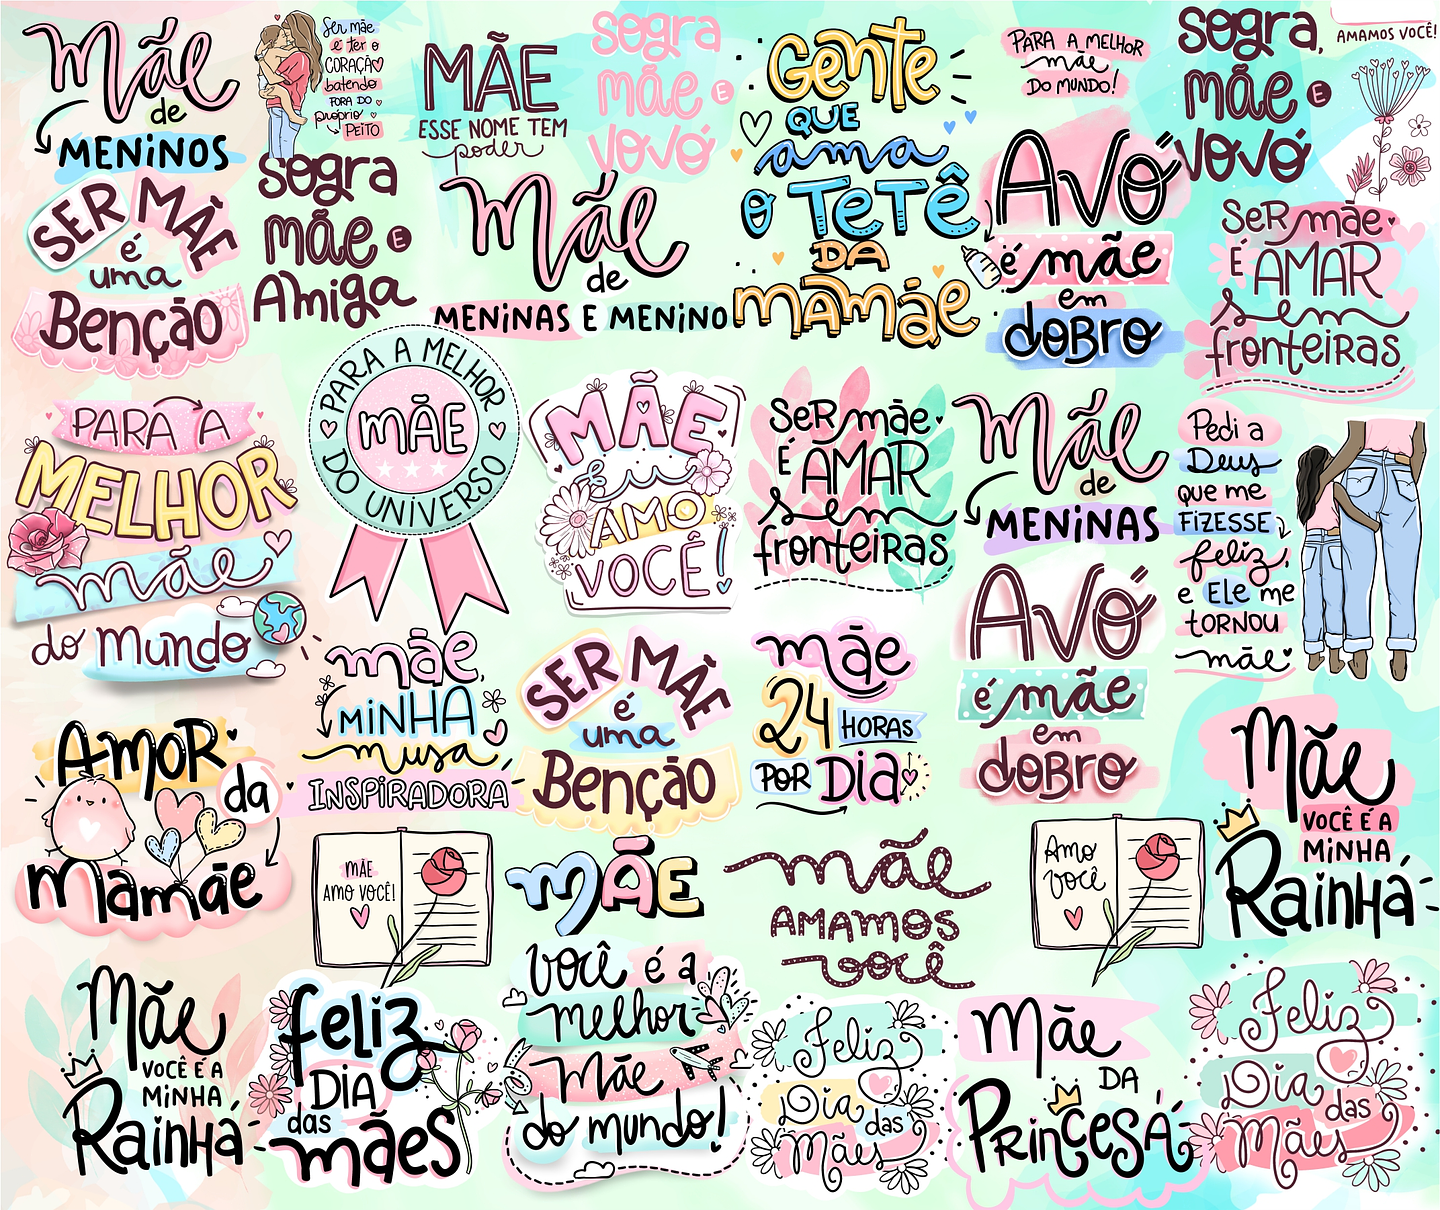 Mãe
de
MENINOS
Ser mãe
é ter o
CORAÇÃO
batendo
FORA DO
próprio
PEITO
MÃE
ESSE NOME TEM
poder
sogra
mãe E
vovó
Gente
QUE
ama
o TeTê
DA
mamãe
PARA A MELHOR
mãe
DO MUNDO!
sogra,
mãe E
vovó
AMAMOS VOCÊ!
SER MÃE
é
uma
Benção
sogra
mãe E
Amiga
Mãe
de
MENINAS E MENINO
Avó
é mãe
em
dobro
Ser mãe
É AMAR
sem
fronteiras
PARA A
MELHOR
mãe
do Mundo
PARA A MELHOR
MÃE
DO UNIVERSO
MÃE
eu
AMO
VOCÊ!
Ser mãe
É AMAR
sem
fronteiras
Mãe
de
MENINAS
Pedi a
Deus
que me
FIZESSE
feliz,
e Ele me
TORNOU
mãe
mãe,
MINHA
musa
INSPIRADORA
SER MÃE
é
uma
Benção
mãe
24 HORAS
POR Dia
Avó
é mãe
em
dobro
Amor
da
mamãe
MÃE
AMO VOCÊ!
MÃE
mãe
AMAMOS
você
Amo
você
Mãe
VOCÊ É A
MINHA
Rainha
Mãe
VOCÊ É A
MINHA
Rainha
feliz
DIA
das
mães
Você é a
melhor
Mãe
do mundo!
Feliz
Dia
das
Mães
Mãe
DA
Princesa
Feliz
Dia
das
Mães